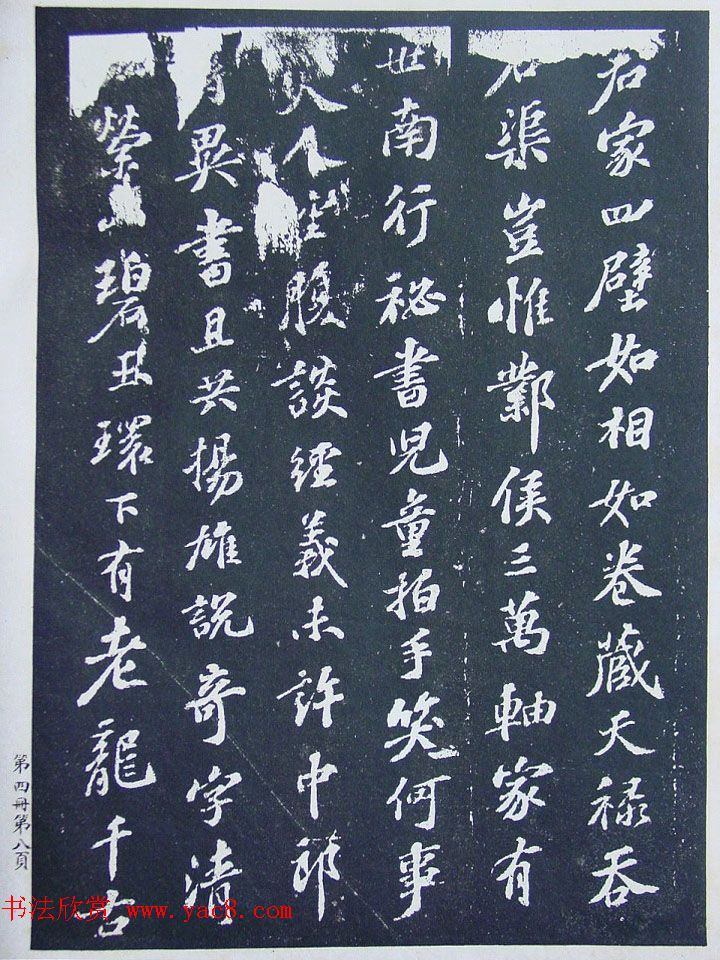 君家四壁如相如卷藏天祿吞
石渠豈惟鄴侯三萬軸家有
世南行秘書兒童拍手笑何事
人空腹談經義未許中郎
異書且共揚雄說奇字清
縈山碧玉環下有老龍千古
第四冊第八頁
书法欣赏 www.yac8.com